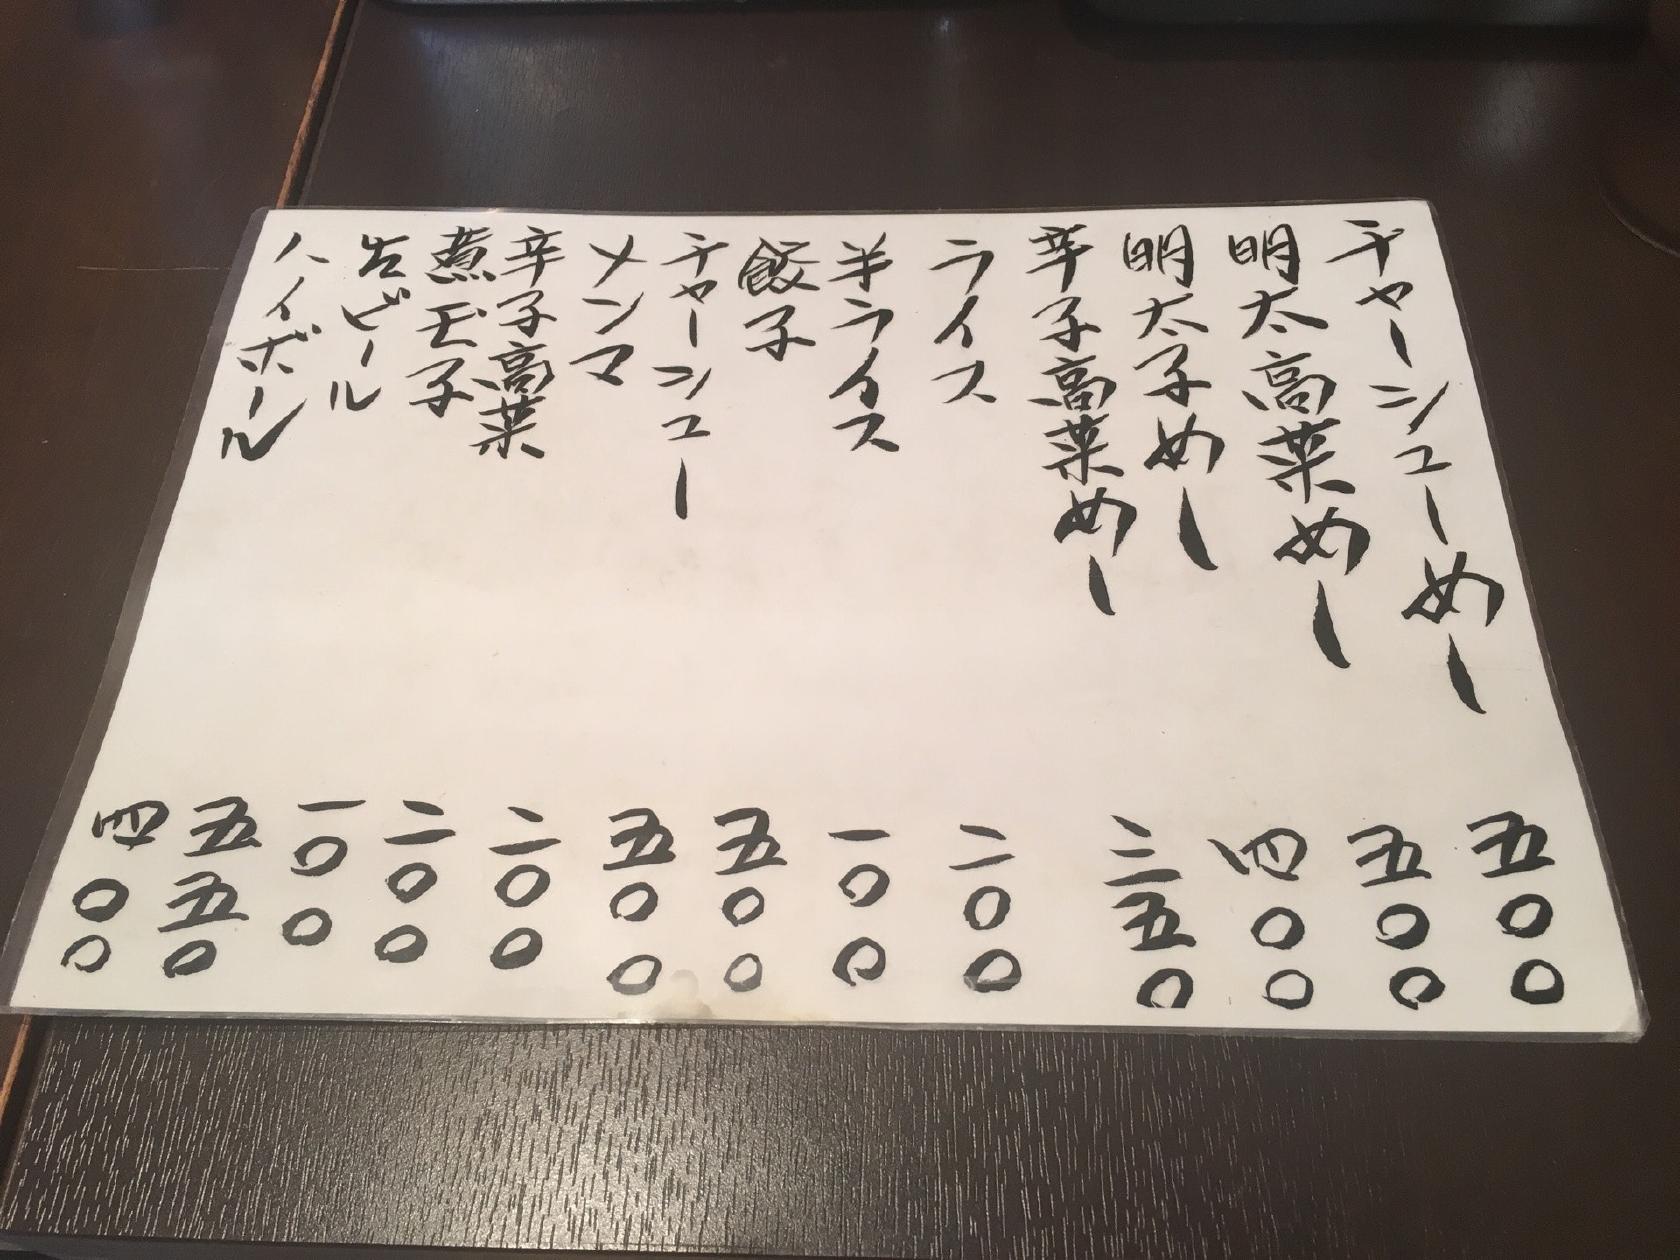 チャーシューめし 五〇〇
明太高菜めし 五〇〇
明太子めし 四〇〇
辛子高菜めし 三五〇
ライス 二〇〇
半ライス 一〇〇
餃子 五〇〇
チャーシュー 五〇〇
メンマ 二〇〇
辛子高菜 二〇〇
煮玉子 一〇〇
生ビール 五五〇
ハイボール 四〇〇